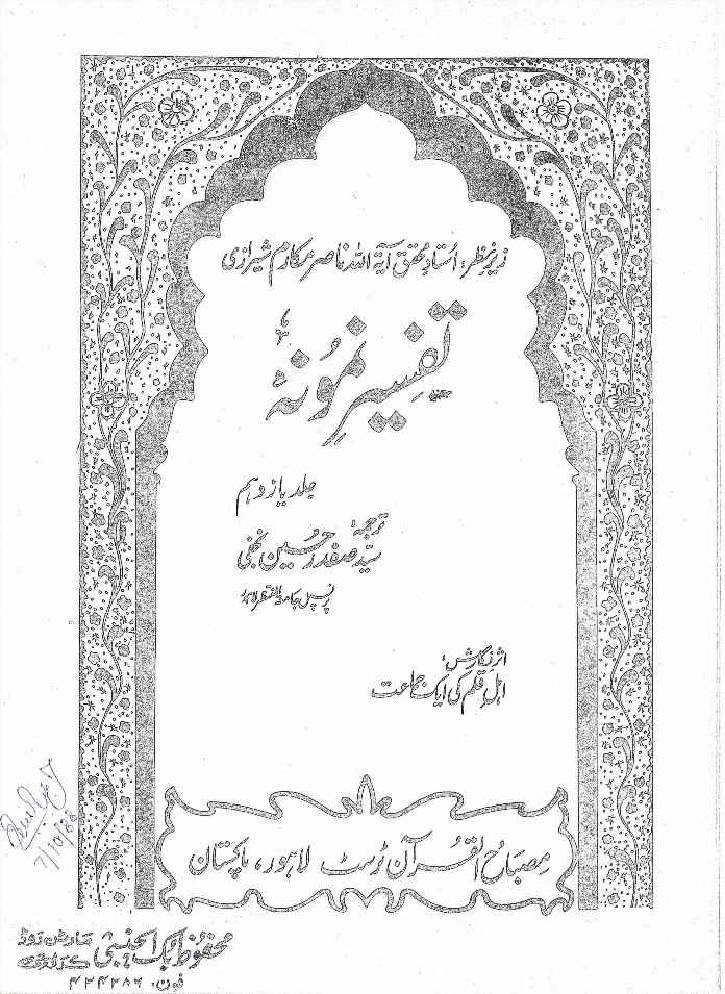 زیرِ نظر: استادِ محقق آیۃ اللہ ناصر مکارم شیرازی
تفسیرِ نمونہ
جلد یازدہم
ترجمہ:
سیّد صفدر حسین نجفی
پرنسپل جامعۃ المنتظر لاہور
اثرِ نگارش:
اہلِ قلم کی ایک جماعت
مصباح القرآن ٹرسٹ لاہور، پاکستان
7/10/88
محفوظ بک ایجنسی مارٹن روڈ
کراچی
فون: ۴۲۴۲۸۶